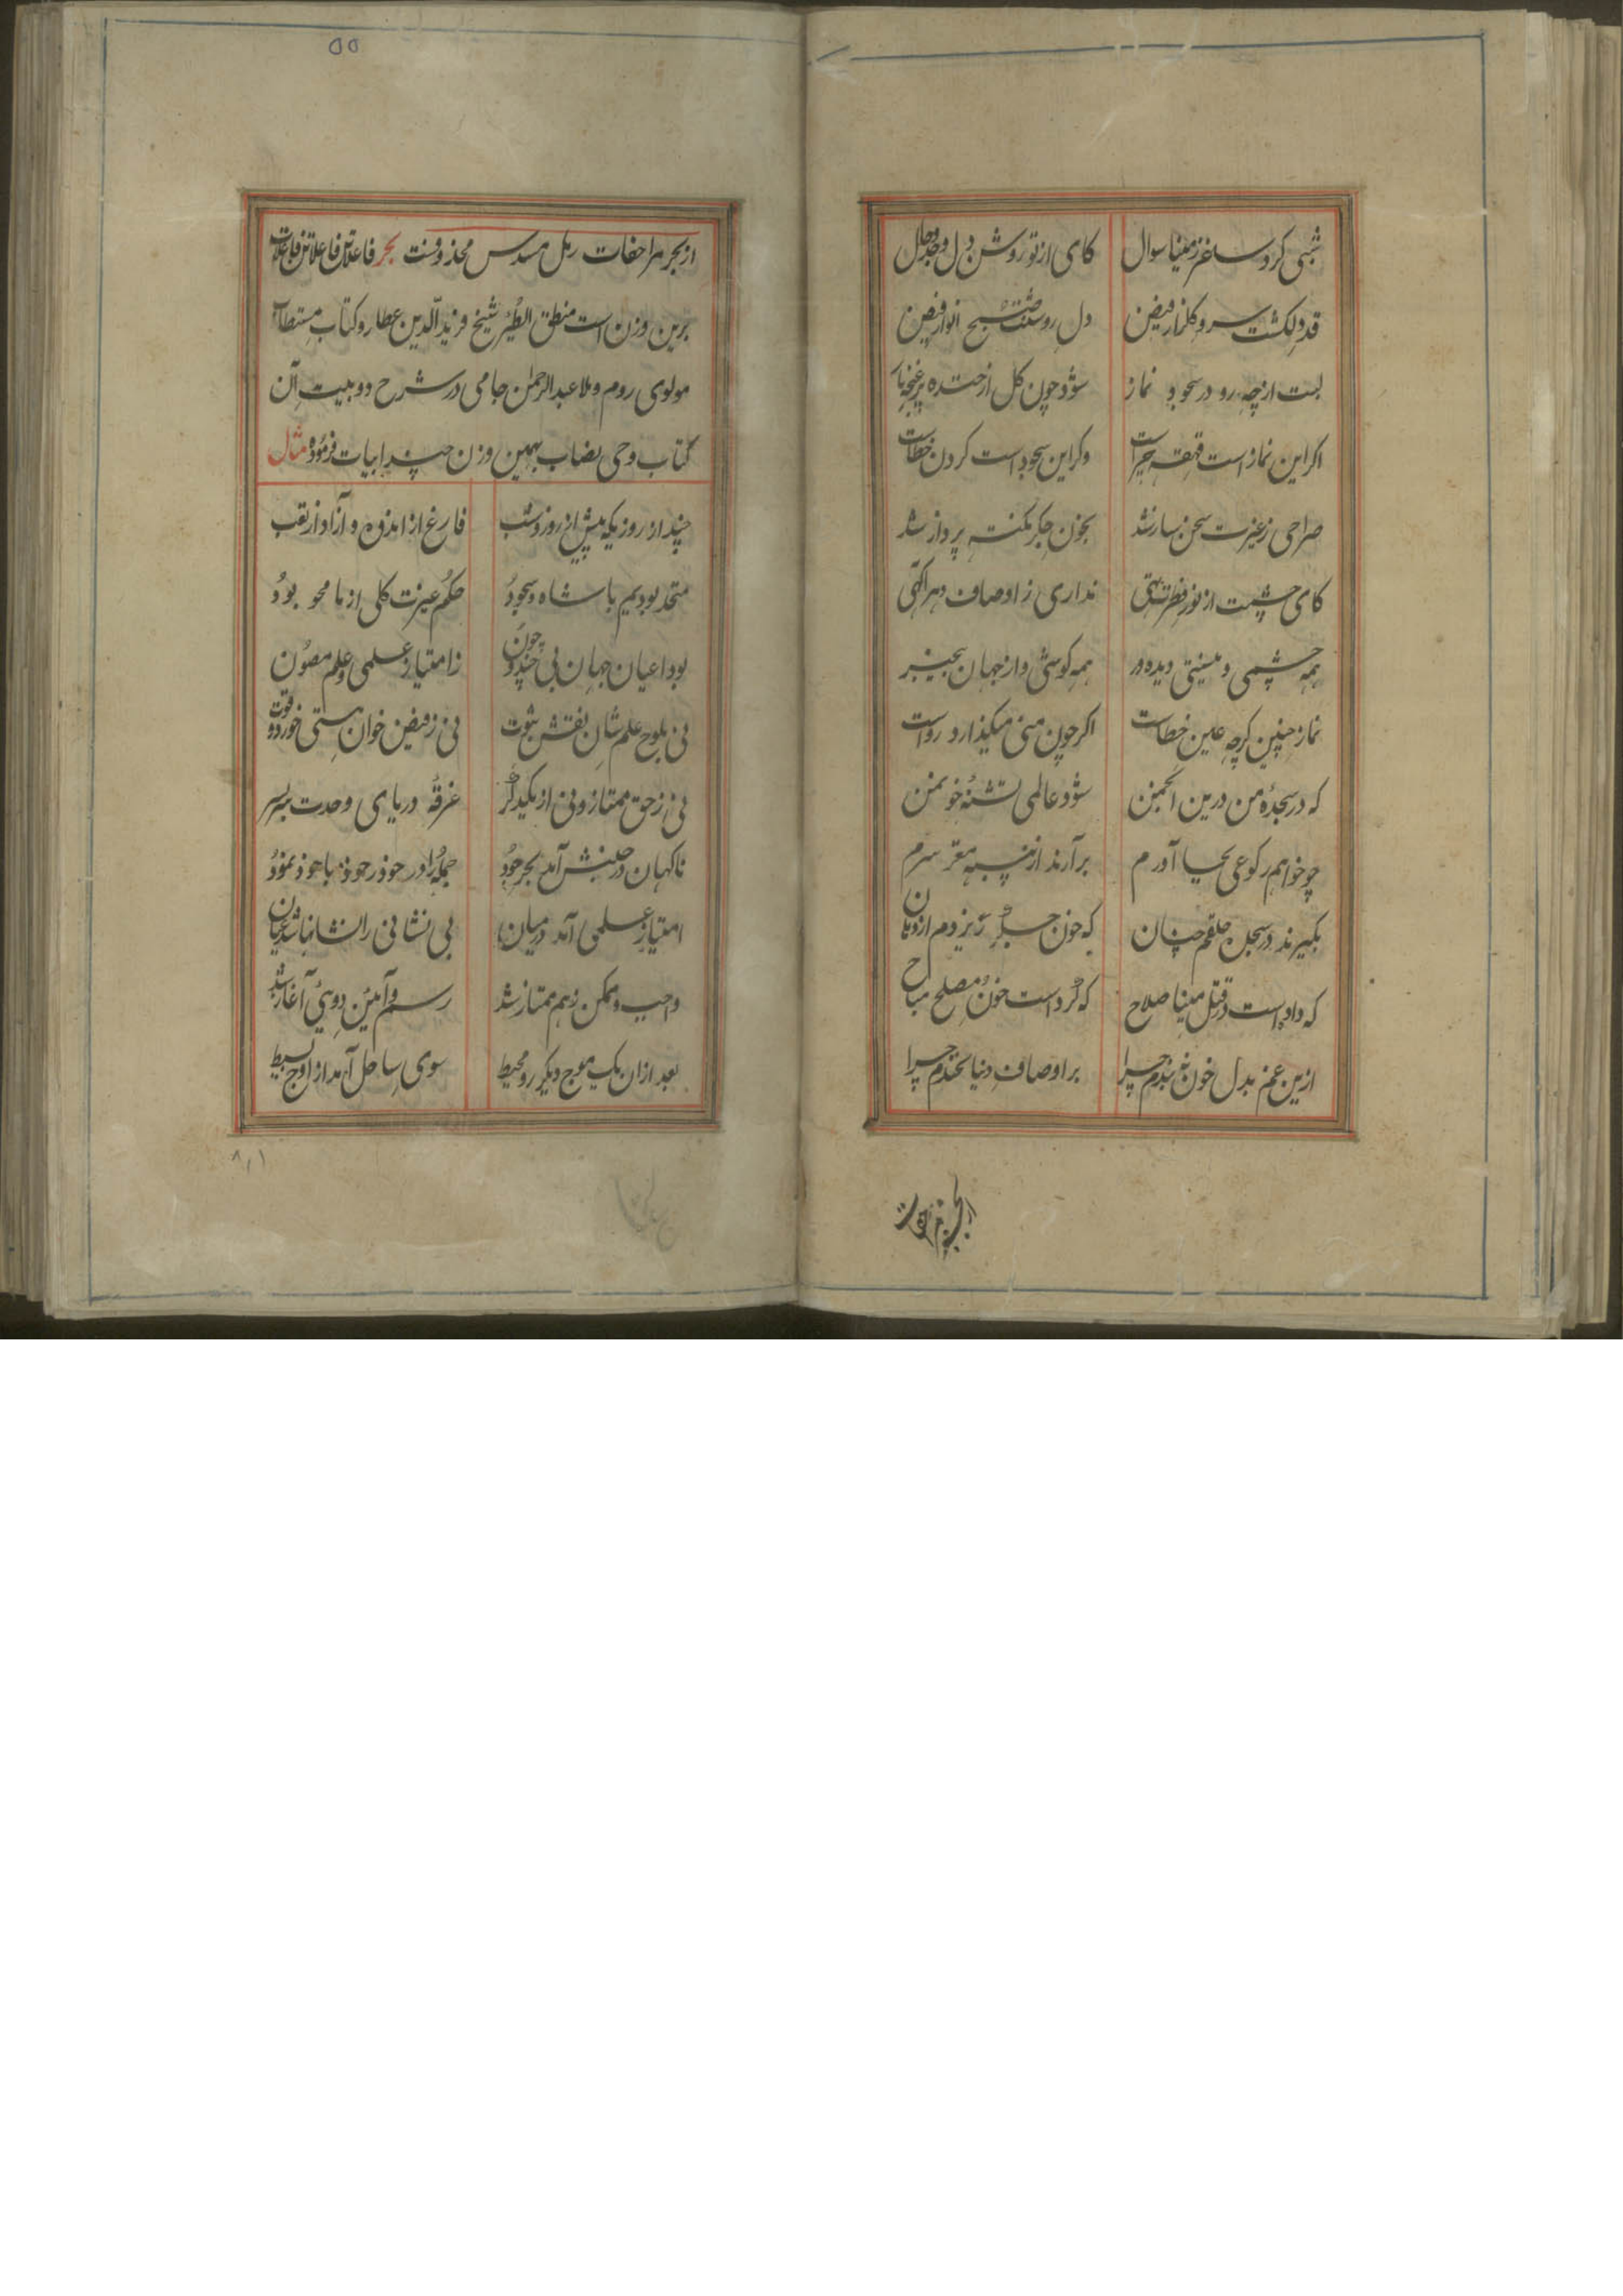 شبی کرد ساغر ز مینا سوال کای از تو روشن دل وجد وحال
قد دلکشت سرو کلزار فیض دل روشنت صبح انوار فیض
لبت از چه رو در سجود نماز شود چون کل از خنده پر غنچه باز
اکر این نماز است قهقهه چراست وکر این سجود است کردن خطاست
صراحی ز غیرت سخن ساز شد بخون جکر نکته پرداز شد
کای چشمت از نور فطرت تهی نداری ز اوصاف دهر آکهی
همه چشمی و نیستی دیده ور همه کوشی و از جهان بیخبر
نماز چنین کرچه عین خطاست اکر چون منی میکذارد رواست
که در سجدهٔ من درین انجمن شود عالمی تشنهٔ خون من
چو خواهم رکوعی بجا آورم برآرند از پنبه مغز سرم
بکیرند در سجده حلقم چنان که خون جکر ریزدم از دهان
که داد است در قتل مینا صلاح که کرد است خون مصلح مباح
ازین غم بدل خون نه بندم چرا بر اوصاف دنیا نخندم چرا
از بحر مزاحفات
۵۵
از بحر مزاحفات رمل مسدس محذوفست بحر فاعلاتن فاعلاتن فاعلات
برین وزن است منطق الطیر شیخ فرید الدین عطار و کتاب مستطاب
مولوی روم و ملا عبد الرحمن جامی در شرح دو بیت آن
کتاب وحی نصاب بهمین وزن چند ابیات فرموده مثال
چند از روزیکه پیش از روز وشب فارغ از اندوه و آزاد از تعب
متحد بودیم با شاه وجود حکم غیرت کلی از ما محو بود
بود اعیان جهان بی چند وچون ز امتیاز علمی و علم مصون
نی بلوح علم شان نقش ثبوت نی ز فیض خوان هستی خورده قوت
نی ز حق ممتاز و نی از یکدکر غرقهٔ دریای وحدت سر بسر
ناکهان در جنبش آمد بحر جود جمله را در خود ز خود با خود نمود
امتیاز علمی آمد در میان بی نشانی را نشانها شد عیان
واجب و ممکن ز هم ممتاز شد رسم و آئین دوئی آغاز شد
بعد ازان یک موج دیکر زد محیط سوی ساحل آمد از اوج بسیط